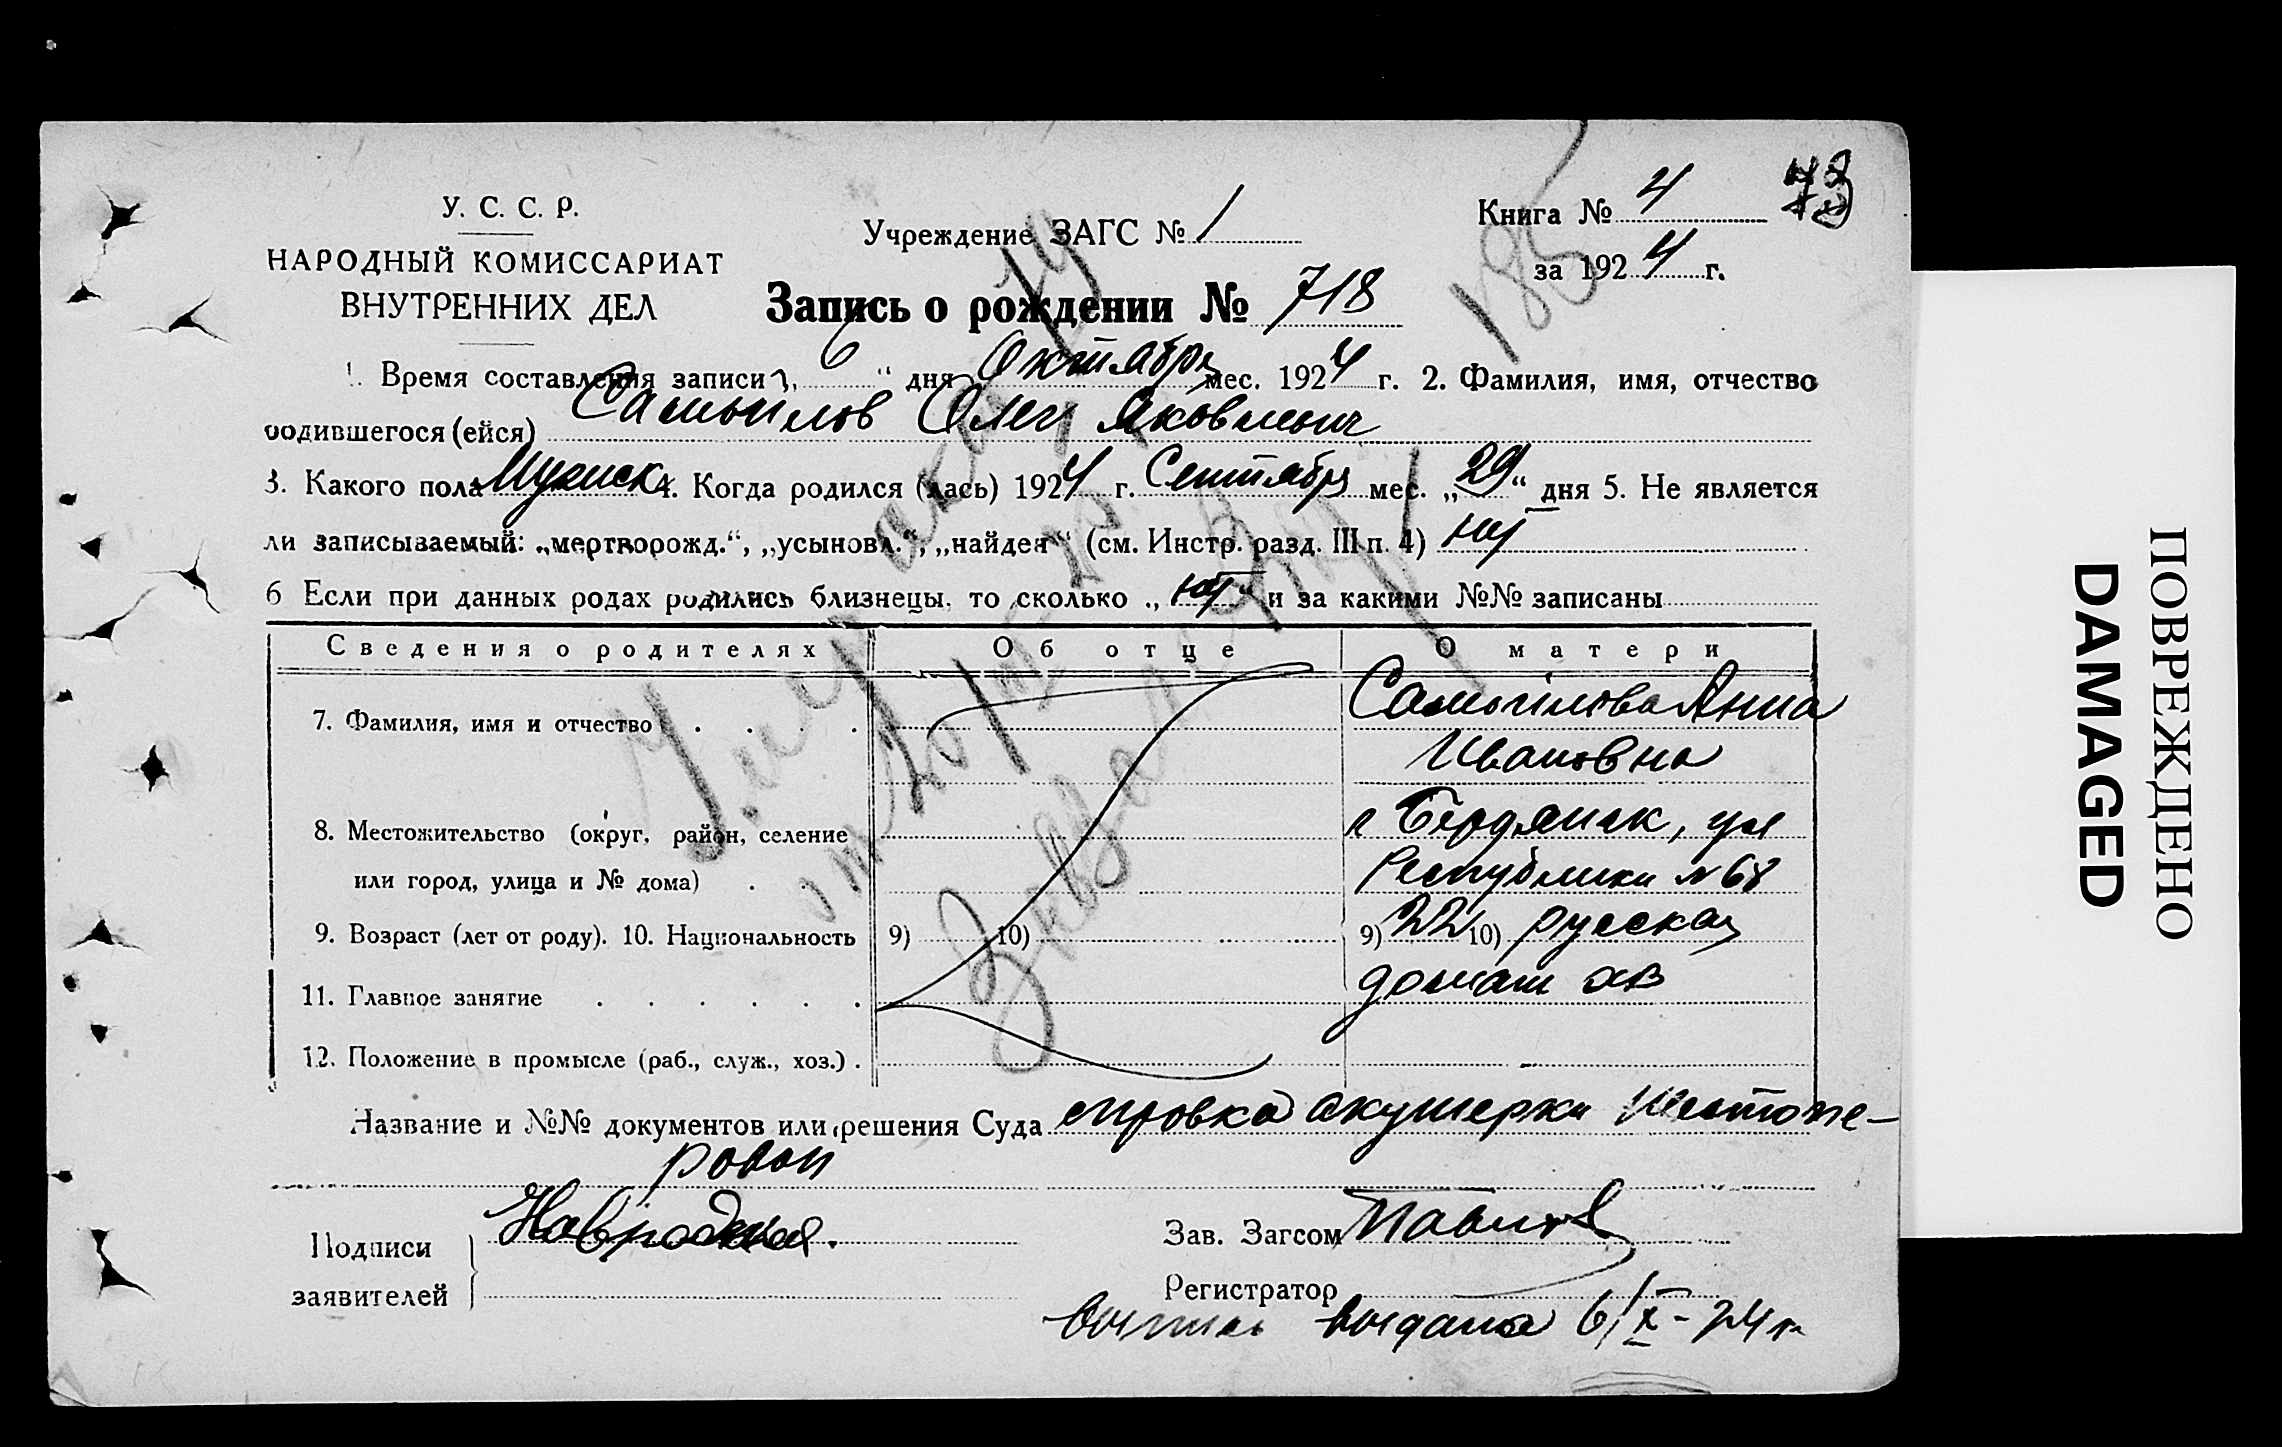 У. С. С. Р.
НАРОДНЫЙ КОМИССАРИАТ
ВНУТРЕННИХ ДЕЛ
Учреждение ЗАГС № 1
Книга № 4
за 1924 г.
Запись о рождении № 718
185
1. Время составления записи „6“ дня Октября мес. 1924 г. 2. Фамилия, имя, отчество
родившегося (ейся) Самойлов Олег Яковлевич
3. Какого пола Мужск 4. Когда родился (лась) 1924 г. Сентября мес. „29“ дня 5. Не является
ли записываемый: „мертворожд.“, „усыновл.“, „найден“ (см. Инстр. разд. III п. 4) нет
6 Если при данных родах родились близнецы, то сколько „нет“ и за какими №№ записаны
Сведения о родителях Об отце О матери
7. Фамилия, имя и отчество . . . . Самойлова Анна
Ивановна
8. Местожительство (округ, район, селение г Бердянск, ул
или город, улица и № дома) . . Республики № 68
9. Возраст (лет от роду). 10. Национальность 9) 10) 9) 22 10) русская
11. Главное занятие . . . . . . домаш хв
12. Положение в промысле (раб., служ., хоз.) .
Название и №№ документов или решения Суда справка акушерки Шестопе-
ровой
Подписи
заявителей
Зав. Загсом
Регистратор
выпись выдана 6/X-24 г
ПОВРЕЖДЕНО
DAMAGED